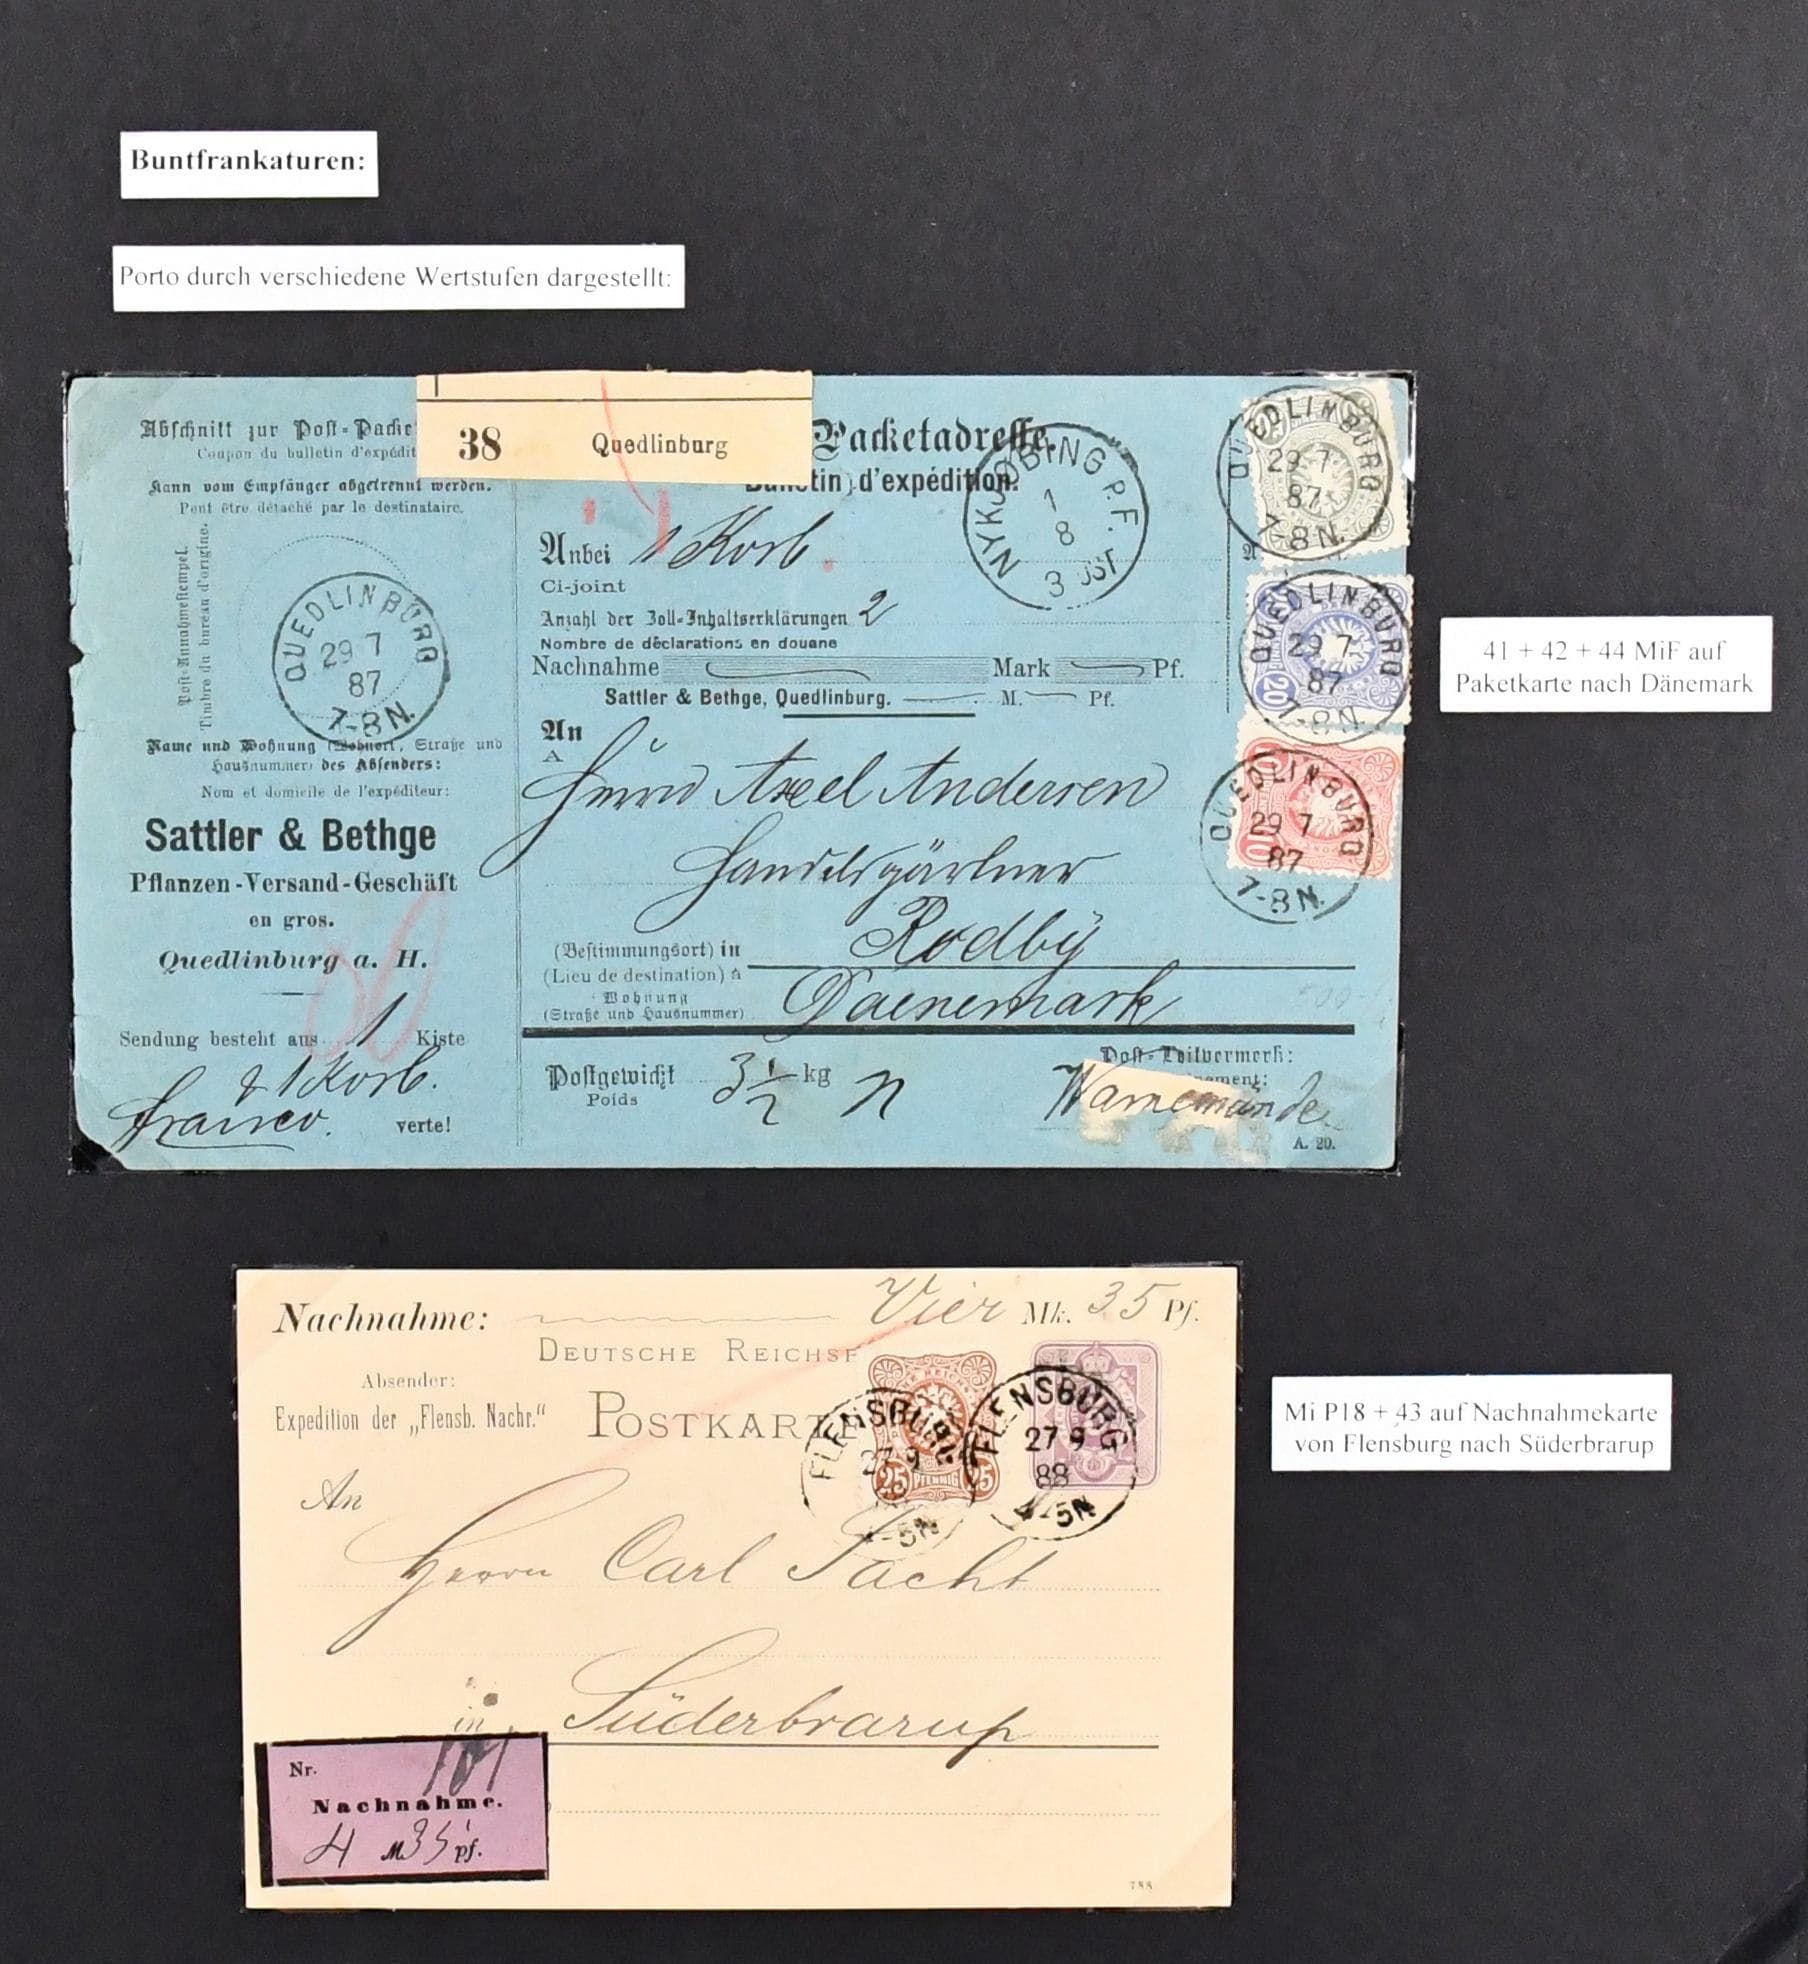 Buntfrankaturen:
Porto durch verschiedene Wertstufen dargestellt:
Abschnitt zur Post-Packe
Coupon du bulletin d'expédit
Kann vom Empfänger abgetrennt werden.
Peut être détaché par le destinataire.
Post-Annahmestempel.
Timbre du bureau d'origine.
QUEDLINBURG
29 7
87
7-8N.
Name und Wohnung (Wohnort, Straße und
Hausnummer) des Absenders:
Nom et domicile de l'expéditeur:
Sattler & Bethge
Pflanzen-Versand-Geschäft
en gros.
Quedlinburg a. H.
Sendung besteht aus 1 Kiste
& 1 Korb.
franco. verte!
38 Quedlinburg
Packetadresse.
Bulletin d'expédition.
NYKJØBING P.F.
1
8
3 OST
Anbei 1 Korb.
Ci-joint
Anzahl der Zoll-Inhaltserklärungen 2
Nombre de déclarations en douane
Nachnahme Mark Pf.
Sattler & Bethge, Quedlinburg. M. Pf.
An
A
Herrn Axel Andersen
Handelsgärtner
(Bestimmungsort) in Rodby
(Lieu de destination) à
Wohnung Daenemark
(Straße und Hausnummer)
Postgewicht 3 1/2 kg n
Poids
Post-Leitvermerk:
Warnemünde
A. 20.
QUEDLINBURG
29 7
87
7-8N.
QUEDLINBURG
20
29 7
87
7-8N.
QUEDLINBURG
10
29 7
87
7-8N.
41 + 42 + 44 MiF auf
Paketkarte nach Dänemark
Nachnahme: Vier Mk. 35 Pf.
DEUTSCHE REICHSP
Absender:
Expedition der „Flensb. Nachr."
POSTKARTE
FLENSBURG
27 9
4-5N
25 PFENNIG 25
FLENSBURG
27 9
88
4-5N
An
Herrn Carl Jacht
in Süderbrarup
Nr.
Nachnahme.
4 M 35 pf.
788
Mi P18 + 43 auf Nachnahmekarte
von Flensburg nach Süderbrarup